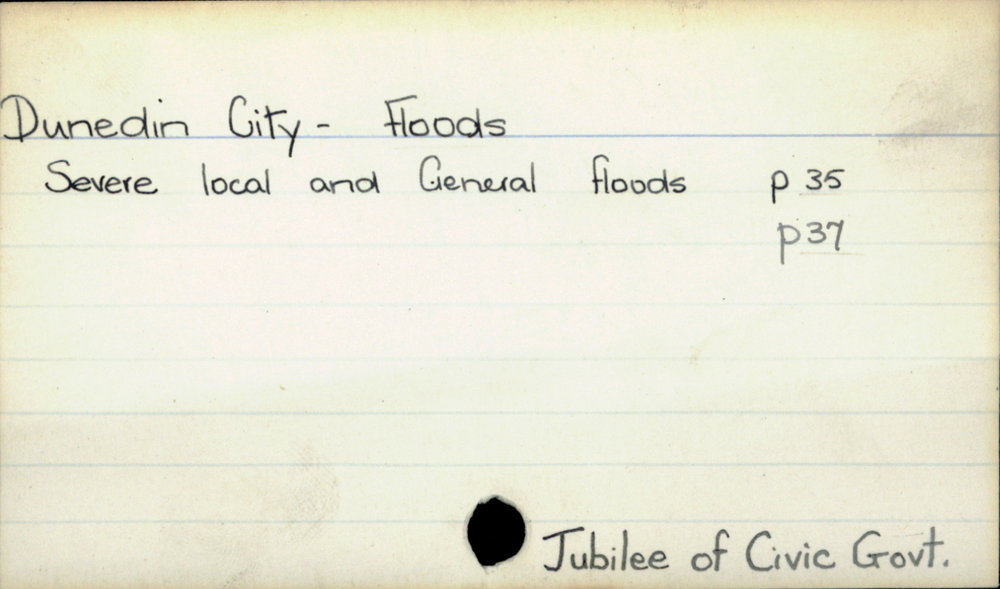 Dunedin City - Floods
Severe local and General floods p 35
p37
Jubilee of Civic Govt.